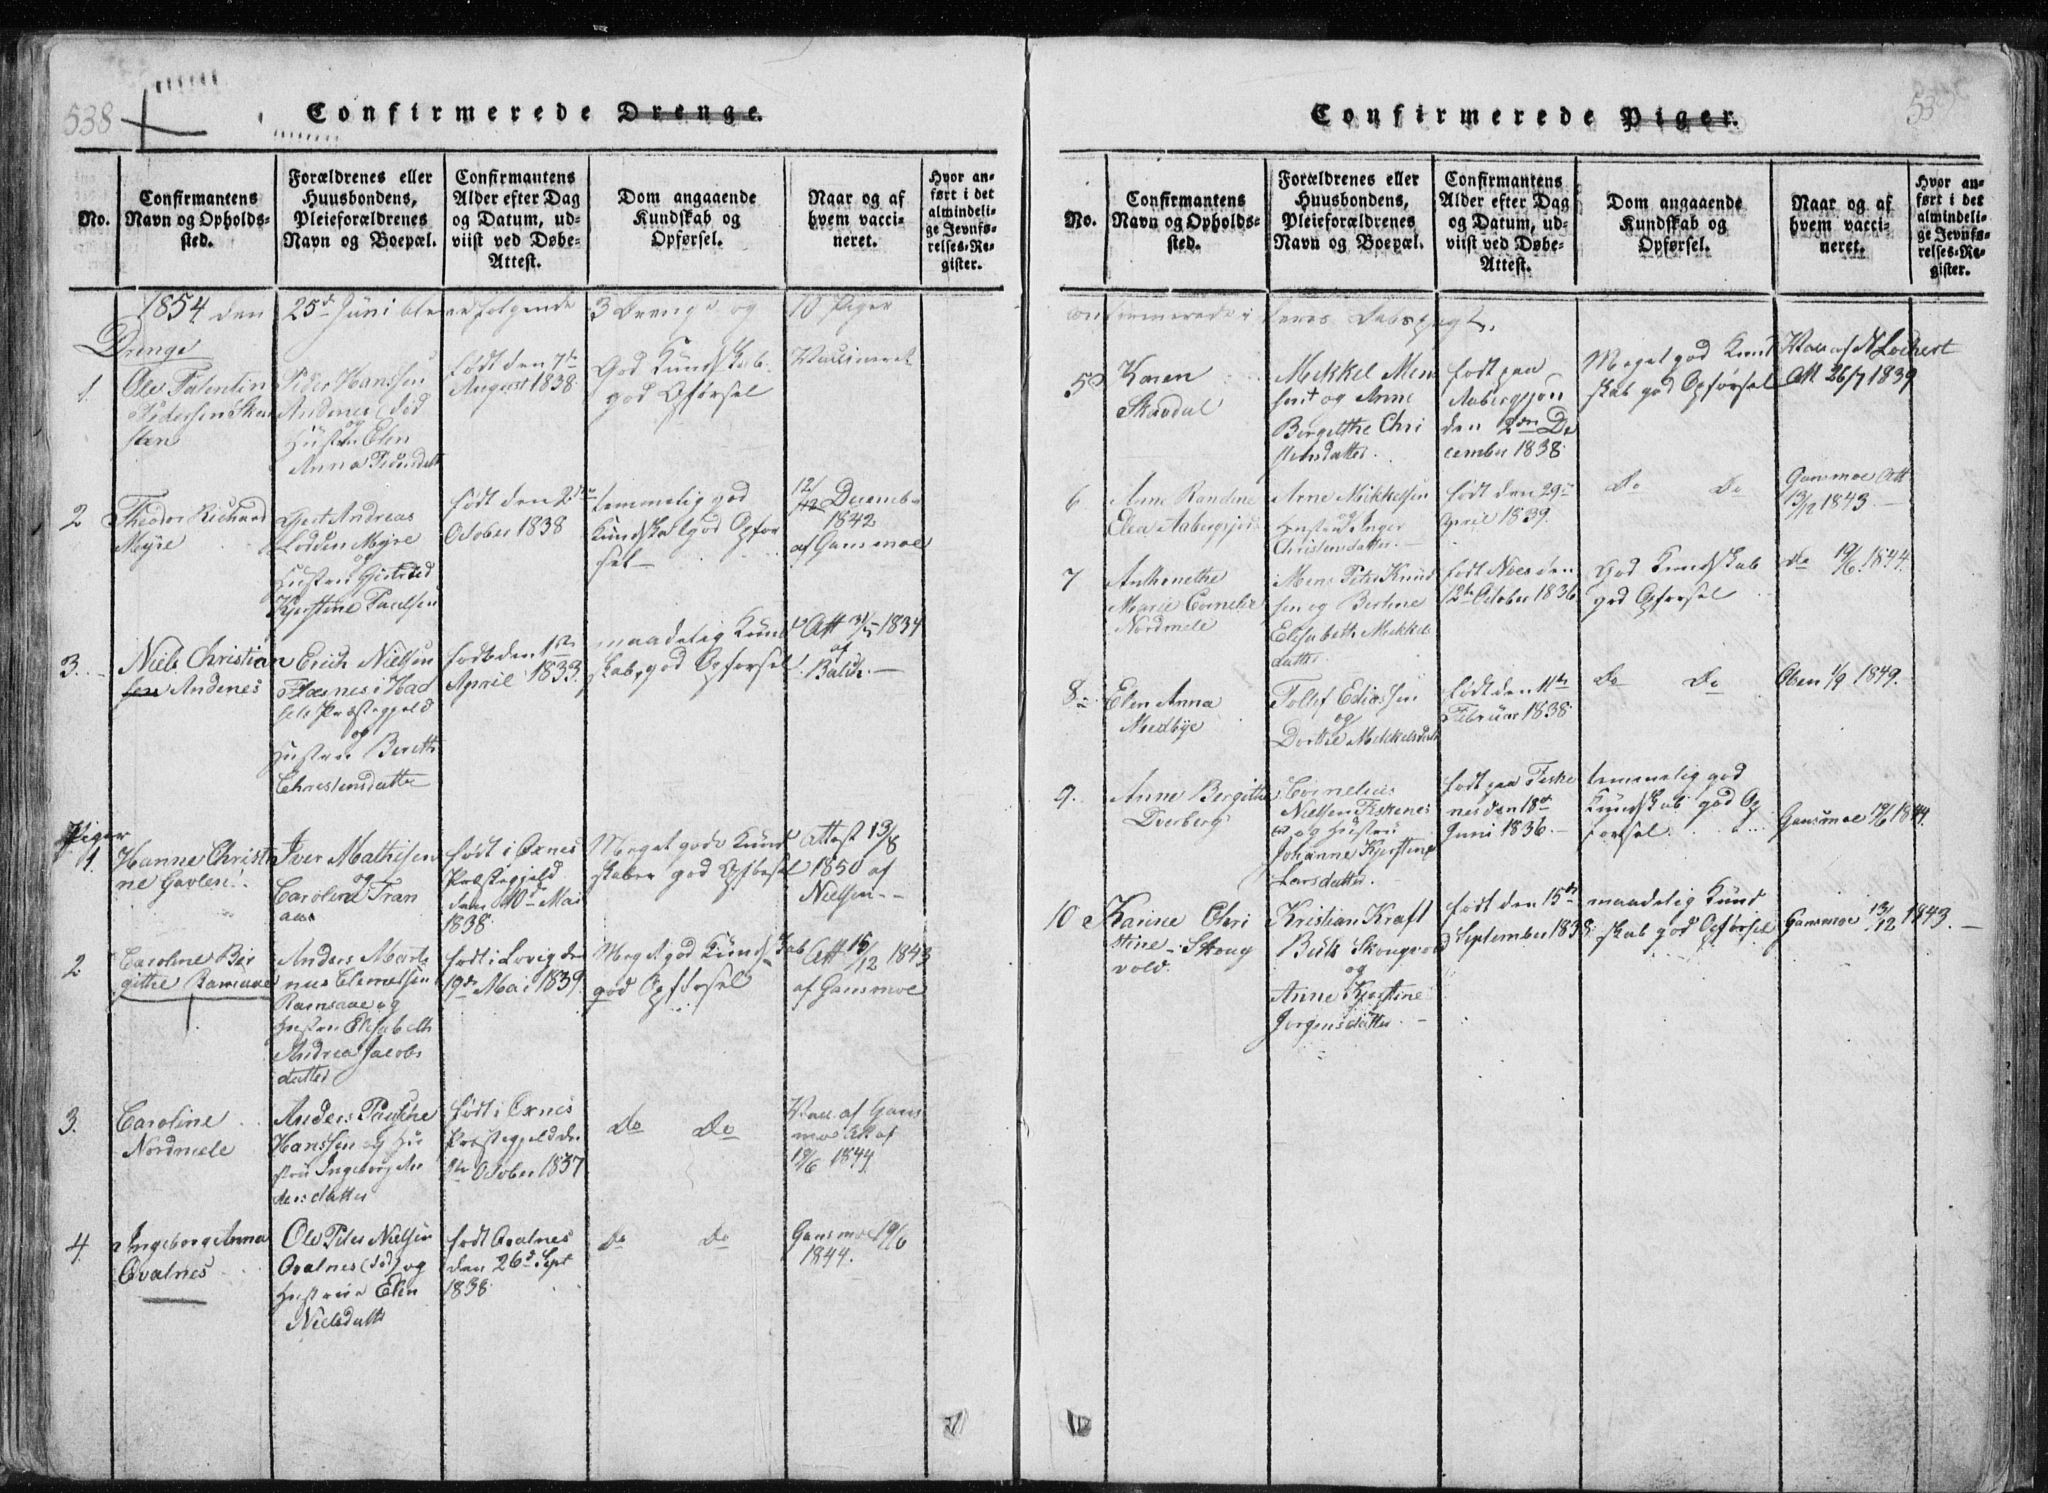 538
Confirmerede Drenge.
No.
Confirmantens
Navn og Opholds-
sted.
Forældrenes eller
Huusbondens,
Pleieforældrenes
Navn og Boepæl.
Confirmantens
Alder efter Dag
og Datum, ud-
viist ved Døbe-
Attest.
Dom angaaende
Kundskab og
Opførsel.
Naar og af
hvem vacci-
neret.
Hvor an-
ført i det
almindeli-
ge Jevnfø-
relses-Re-
gister.
1854 den 25de Juni bleve følgende 3 Drenge og 10 Piger
Drenge
1.
Ole
Pedersen
Peder Hanssen
Andenes død
og
Hustru Elen
Anna
født den 7de
August 1838
God Kundskab
god Opførsel
Vaccineret
2
Theodor Richard
Meyre
Gjert Andreas
Lodden Meyre
og
Hustru
Kjerstine
født den 2den
October 1838
temmelig god
Kundskab god Opfør
sel
12/12 Decemb
1842
af Gansmoe
3.
Niels Christian
sen Andenes
Erich Nielsen
i Had
sels Præstegjeld
og
Hustru Bereth
Christensdatter
født den 1ste
April 1833
maadelig Kund
skab, god Opførsel
Att 31/5 1834
af
Balch
Piger
1.
Hanne Christi
ne Gavlen
Iver Mathisen
og
Caroline Tran
aas
født i Øxnes
Præstegjeld
den 10de Mai
1838
Meget gode Kund
skaber god Opførsel
Attest 13/8
1850 af
Nielsen
2
Caroline Bir
githe Ramsaae
Anders Marti
nus Clemetsen
Ramsaae og
Hustru Elisabeth
Andrea Jacobs
datter
født i den
19de Mai 1839
Meget god Kundskab
god Opførsel
Att 15/12 1843
af Gansmoe
3.
Caroline
Nordmele
Anders
Hanssen og Hu
stru Ingeborg An
dersdatter
født i Øxnes
Præstegjeld den
October 1837
Do Do
Vacc af Gans
moe Att af
19/6 1844
4.
Ingeborg Anna
Qvalnes
Ole Peter Nielsen
Qvalnes (død) og
Hustrue Elen
Nielsdatter
født Qvalnes
den 26de Sept
1838
Do Do
Gansmoe 19/6
1844.
Confirmerede Piger.
No.
Confirmantens
Navn og Opholds-
sted.
Forældrenes eller
Huusbondens,
Pleieforældrenes
Navn og Boepæl.
Confirmantens
Alder efter Dag
og Datum, ud-
viist ved Døbe-
Attest.
Dom angaaende
Kundskab og
Opførsel.
Naar og af
hvem vacci-
neret.
Hvor an-
ført i det
almindeli-
ge Jevnfø-
relses-Re-
gister.
confirmerede i deres Daabspagt.
5
Karen
Skavdal
Mekkel Men
sen og Anne
Bergitthe Chri
stensdatter
født paa
Aabergsjon
den 2den De
cember 1838
Meget god Kund
skab god Opførsel
Vacc af N Lockert
Att 26/7 1839
6
Anne Randine
Elea Aabergsjor
Arne Mickkelsen
og
Hustru Inger
Christensdatter
født den 29de
April 1839.
Do Do
Gansmoe Att
13/12 1843
7
Anthonethe
Marie Cornelie
Nordmele
Mens Peter Knud
sen og Bertine
Elisabeth Mekkels
datter
født Noes den
12te October 1836
God Kundskab
god Opførsel
do 19/6 1844
8
Elen Anna
Medbye
Tollef Ediassen
og
Dorthe Mekkelsdatt
født den 11te
Februar 1838
Do Do
Oben 1/9 1849.
9.
Anne Bergithe
Dverberg
Cornelius
Nielsen Fiskenes
og Hustru
Johanne Kjerstine
Larsdatter
født paa Fiske
nes den 18de
Juni 1836
temmelig god
Kundskab god Op
førsel
Gansmoe 19/6 1844
10
Karine Chri
stine Skoug
vold
Kristian Kraft
Buk Skougvold
og
Anne Kjerstine
Jorgensdatter
født den 15de
September 1838
maadelig Kund
skab god Opførsel
Gansmoe 13/12 1843.